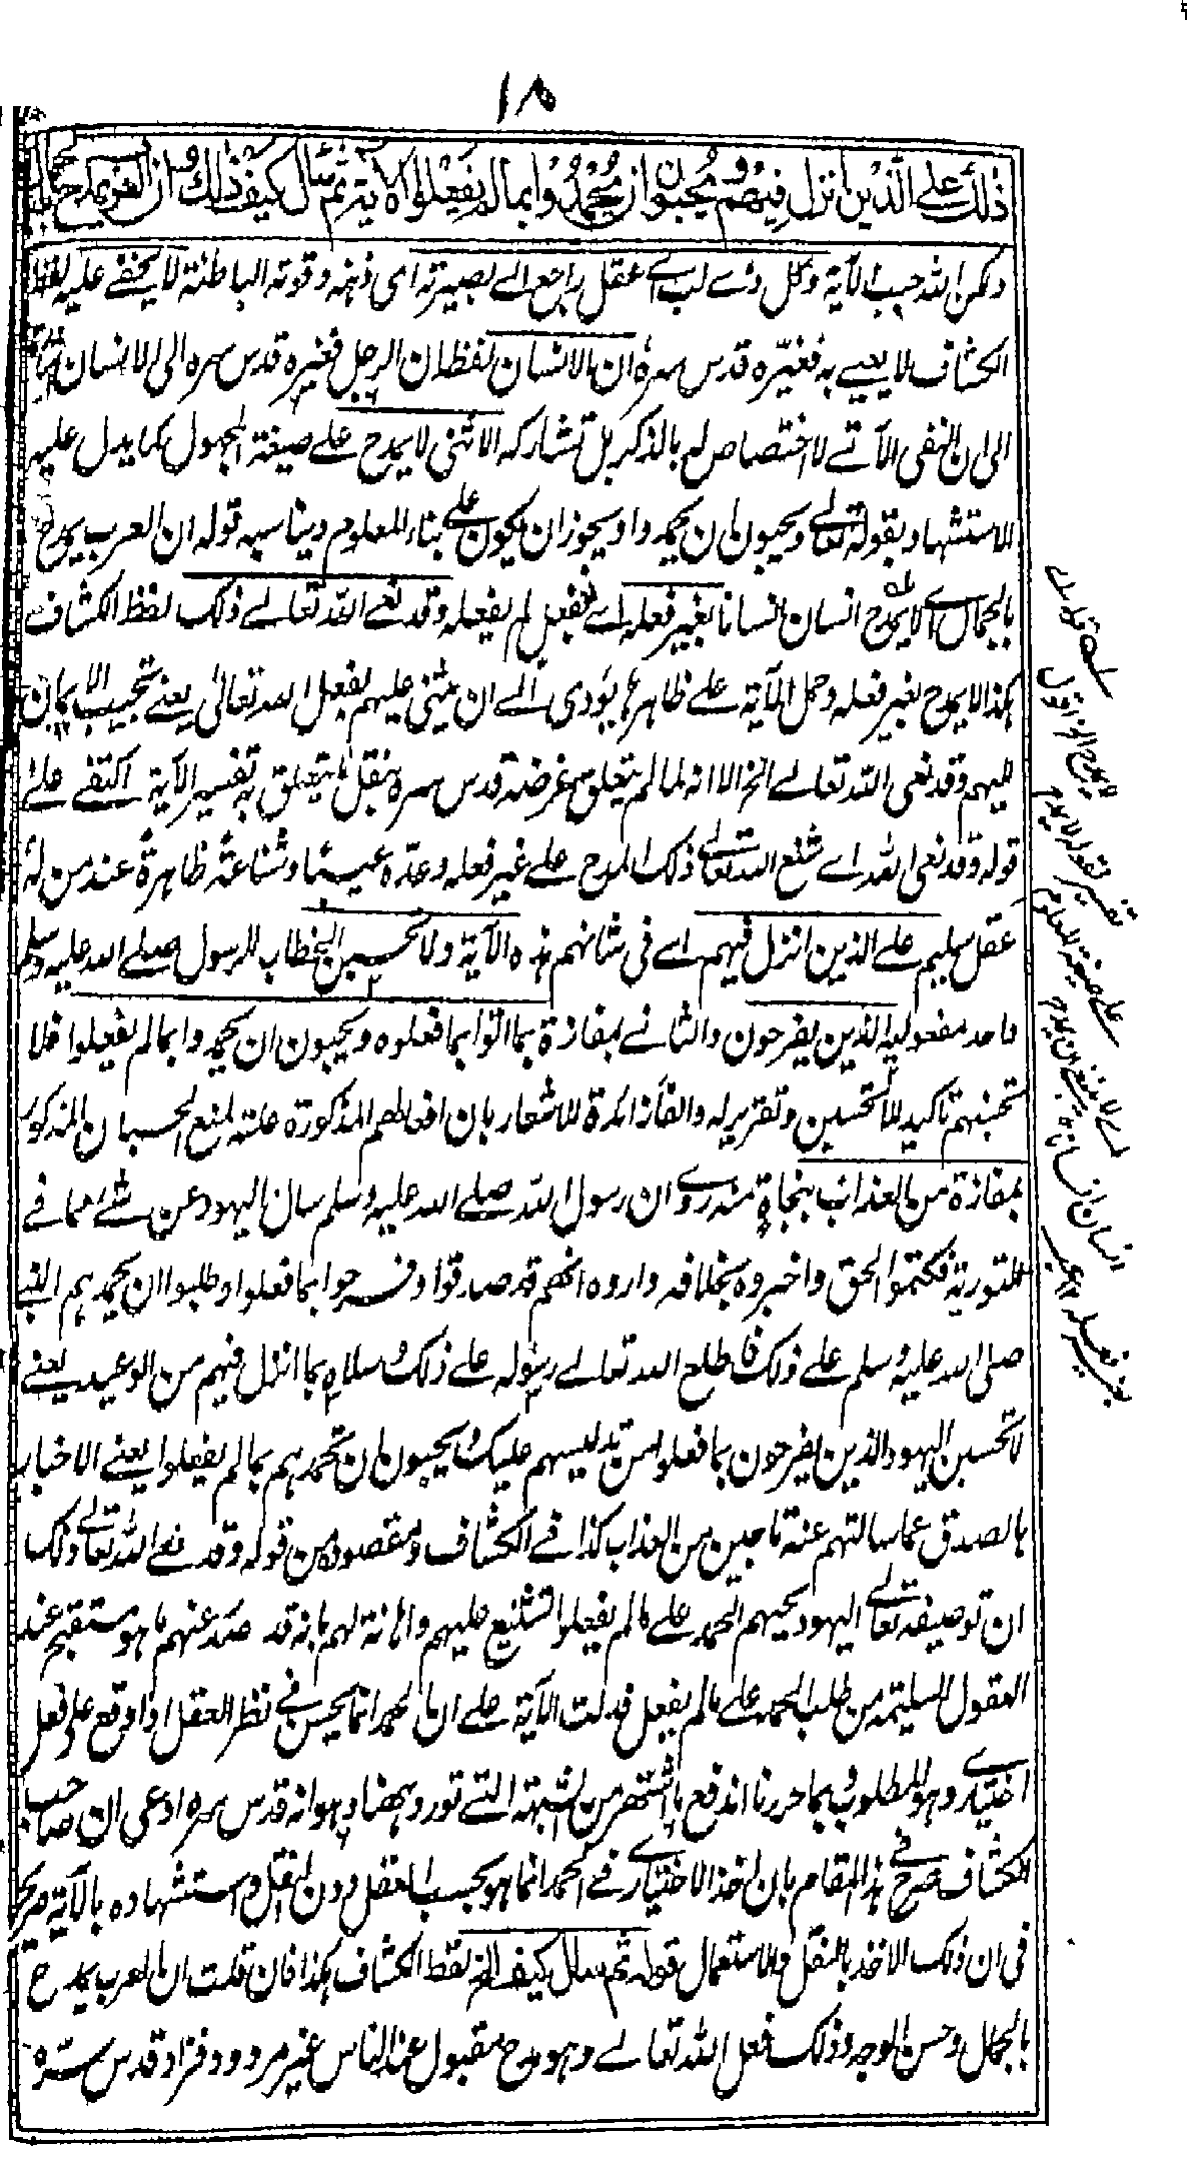 ١٨
ذلك على الذين انزل فيهم ويحبون ان يحمدوا بما لم يفعلوا الآية ثم سال كيف ذلك وان العرب يمدح بالجمال
ولكن الله حبب الآية وكل ذي لب اى عقل راجع الى بصيرته اى ذهنه وقوته الباطنة لا يخفى عليه لفظ
الكشاف لا يعيب به فغيّره قدس سره ان الانسان لفظ ان الرجل فغيره قدس سره الى الانسان
الى ان النفى الآتى لا اختصاص له بالذكر بل تشاركه الانثى لا يمدح على صيغة المجهول كما يدل عليه
الاستشهاد بقوله تعالى ويحبون ان يحمدوا ويجوز ان يكون على بناء المعلوم ويناسبه قوله ان العرب يمدح
بالجمال اى لا يمدح انسان انسانا بغير فعله اى بفعل لم يفعله وقد نعى الله تعالى ذلك لفظ الكشاف
هكذا لا يمدح بغير فعله وحمل الآية على ظاهرها يؤدى الى ان يثنى عليهم بفعل الله تعالى يعنى تحبيب الايمان
اليهم وقد نعى الله تعالى الخ الا انه لما لم يتعلق غرضه قدس سره بنقل ما يتعلق به تفسير الآية اكتفى على
قوله وقد نعى الله اى شنع الله تعالى ذلك المدح على غير فعله وعدّه عيبا وشناعة ظاهرة عند من له
عقل سليم على الذين انزل فيهم اى فى شانهم هذه الآية ولا تحسبن الخطاب للرسول صلى الله عليه وسلم
واحد مفعوليه الذين يفرحون والثانى بمفازة بما اتوا بما فعلوه ويحبون ان يحمدوا بما لم يفعلوا فلا
تحسبنهم تاكيد للا تحسبن وتقرير له والفاء زائدة للاشعار بان افعالهم المذكورة علة لمنع الحسبان المذكور
بمفازة من العذاب بنجاة منه روى ان رسول الله صلى الله عليه وسلم سال اليهود عن شئ مما فى
التورية فكتموا الحق واخبروه بخلافه واروه انهم قد صدقوا وفرحوا بما فعلوا وطلبوا ان يحمدهم النبى
صلى الله عليه وسلم على ذلك فاطلع الله تعالى رسوله على ذلك وسلاه بما انزل فيهم من الوعيد يعنى
لا تحسبن اليهود الذين يفرحون بما فعلوا من تدليسهم عليك ويحبون ان تحمدهم بما لم يفعلوا يعنى الاخبار
بالصدق عما سالتهم عنه ناجين من العذاب كذا فى الكشاف ومقصوده من قوله وقد نعى الله تعالى ذلك
ان توصيفه تعالى اليهود بحبهم الحمد على ما لم يفعلوا تشنيع عليهم واهانة لهم بانه قد صدر عنهم ما هو مستقبح عند
العقول السليمة من طلب الحمد على ما لم يفعل فدلت الآية على ان الحمد انما يحسن فى نظر العقل اذا وقع على فعل
اختيارى وهو المطلوب وبما حررنا اندفع ما اشتهر من الشبهة التى تورد ههنا وهو انه قدس سره ادعى ان صاحب
الكشاف صرح فى هذا المقام بان اخذ الاختيارى فى الحمد انما هو بحسب العقل دون النقل واستشهاده بالآية صريح
فى ان ذلك الاخذ بالنقل والاستعمال قوله ثم سال كيف الخ لفظ الكشاف هكذا فان قلت ان العرب يمدح
بالجمال وحسن الوجه وذلك فعل الله تعالى وهو مدح مقبول عند الناس غير مردود فزاد قدس سره
له قوله
لا يمدح الخ اقول
تفسير لقوله لا يمدح
على صيغة المعلوم
اى لا ينبغى ان يمدح
انسان انسانا
بغير فعله